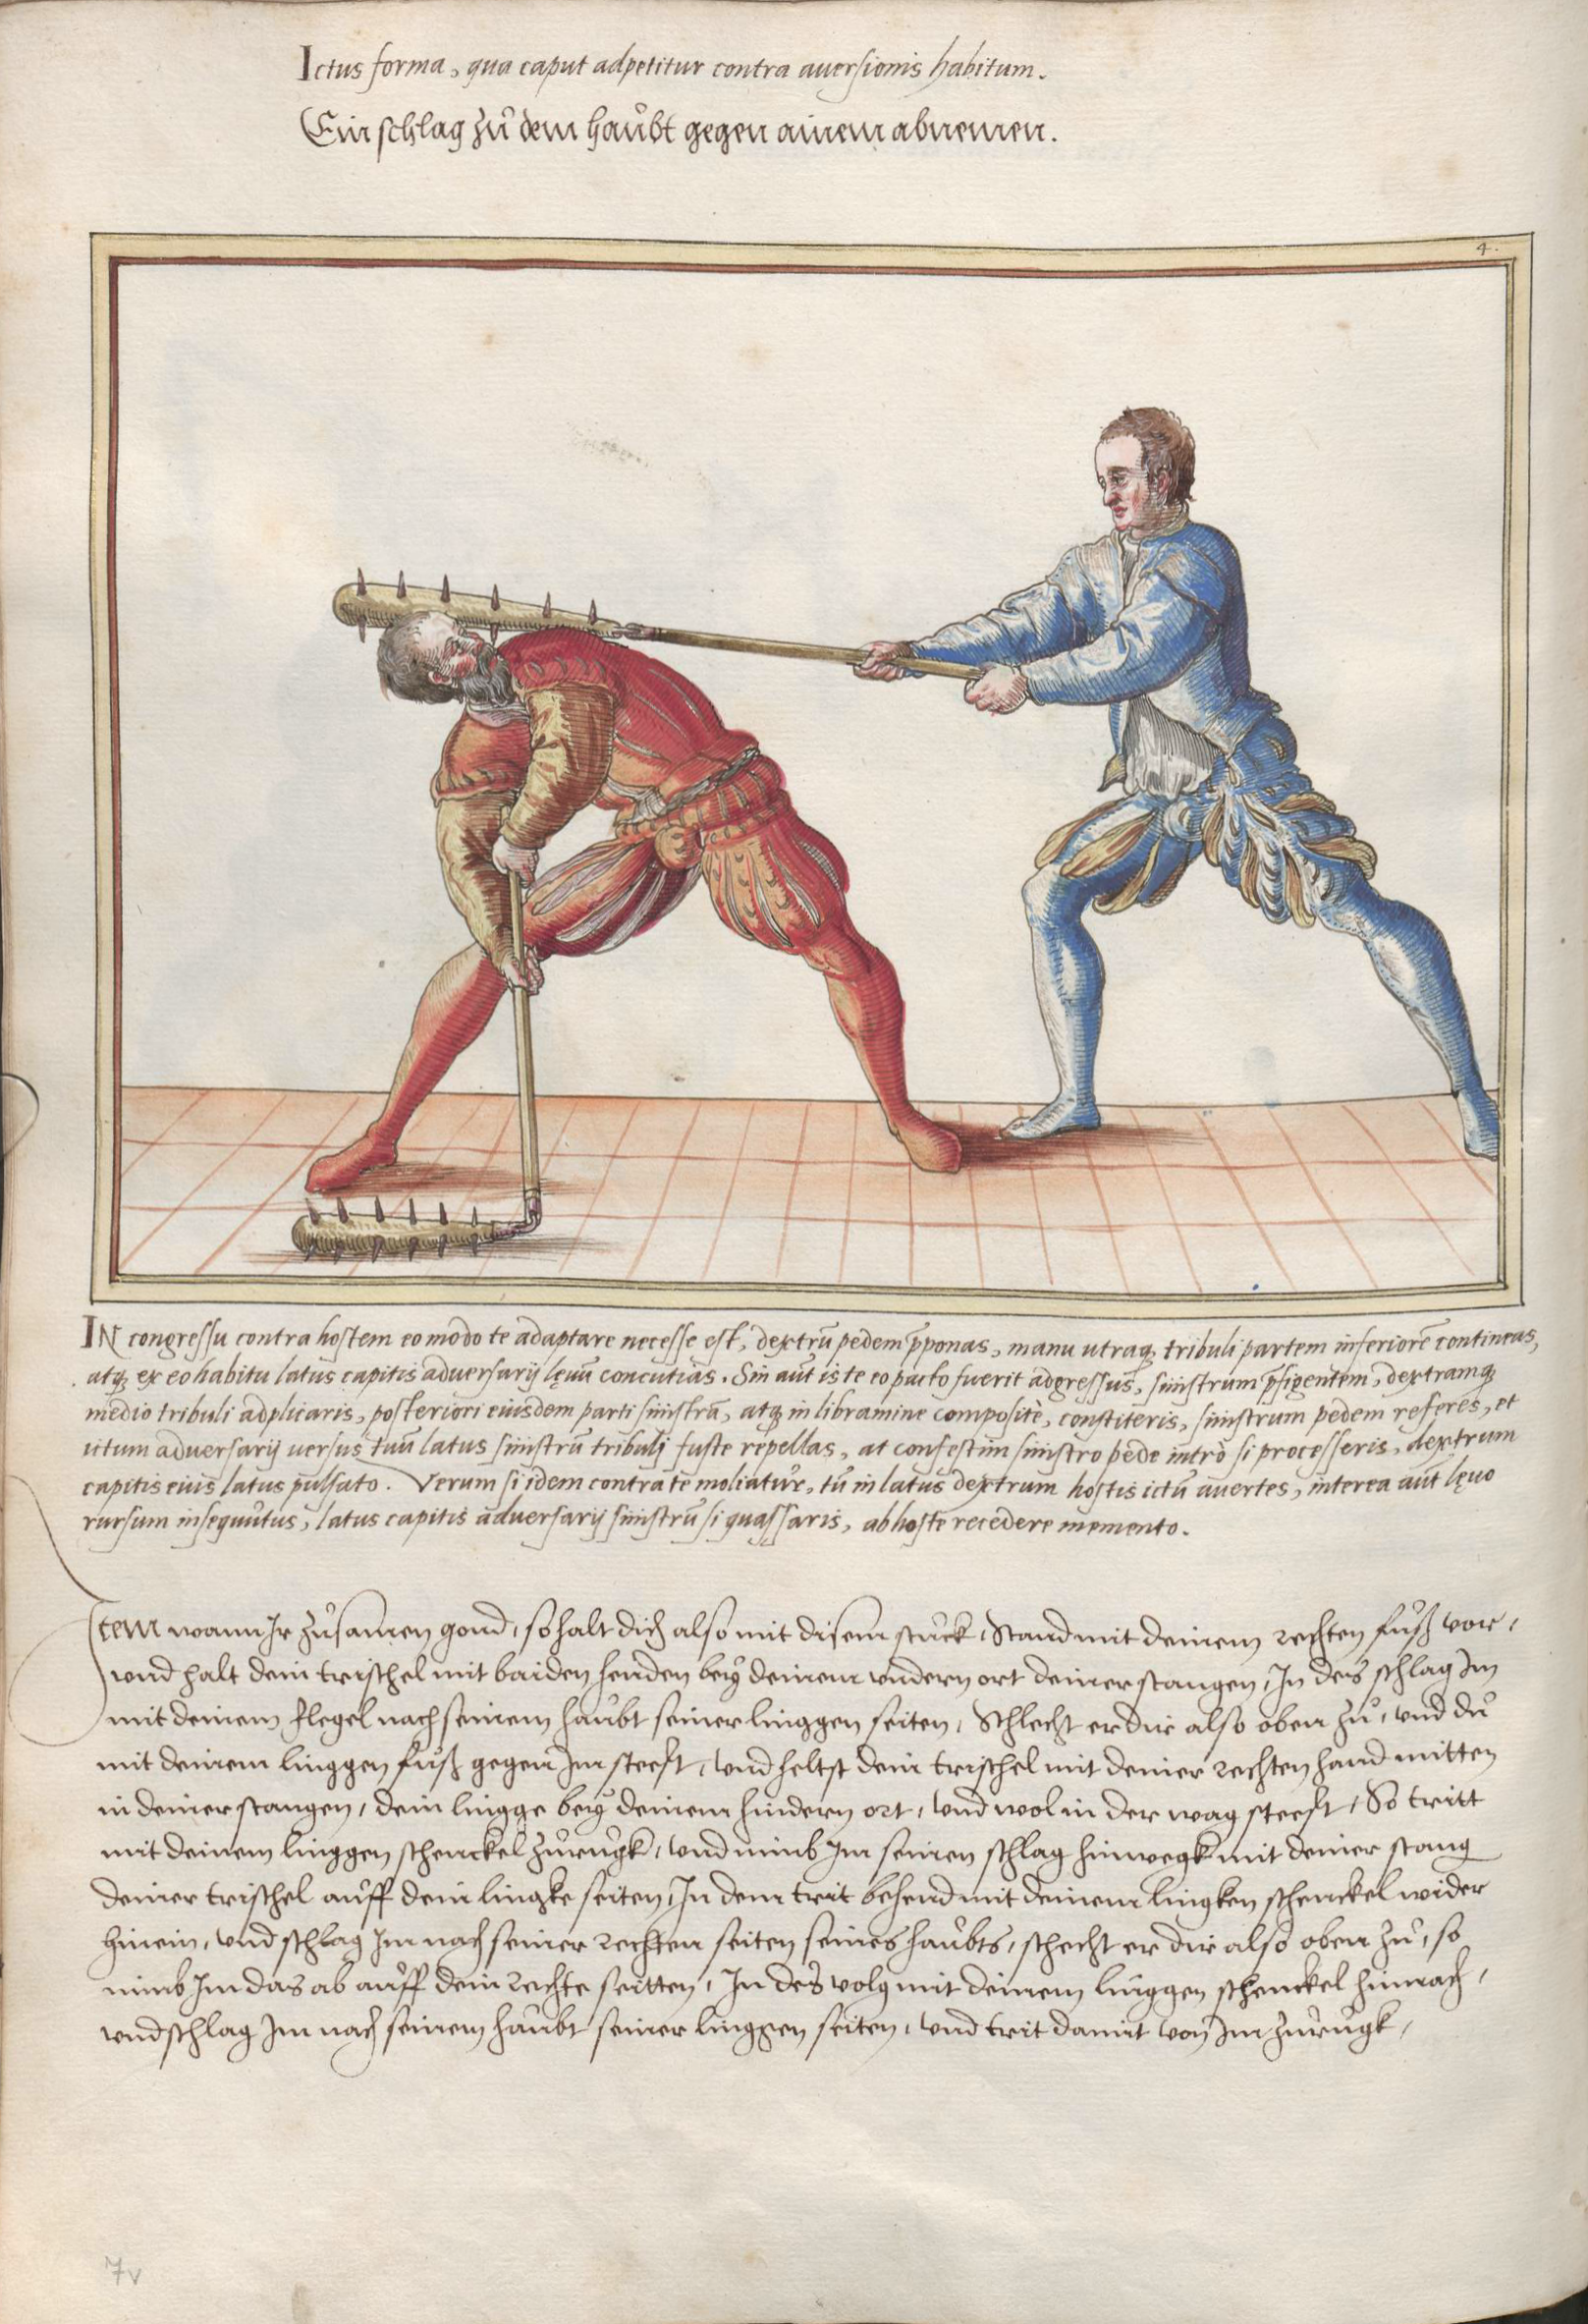 Ictus forma, qua caput adpetitur contra auersionis habitum.
Ein schlag zů dem haůbt gegen ainem abnemen.
4.
IN congressu contra hostem eo modo te adaptare necesse est, dextrũ pedem p̄ponas, manu utraq; tribuli partem inferiorẽ contineas,
atq; ex eo habitu latus capitis aduersarij lęuũ concutias. Sin aũt is te eo pacto fuerit adgressus, sinistrum p̄figentem, dextramq;
medio tribuli adplicaris, posteriori eiusdem parti sinistrã, atq; in libramine compositè, constiteris, sinistrum pedem referes, et
ictum aduersarij uersus tuũ latus sinistrũ tribuli fuste repellas, at confestim sinistro pede intrò si processeris, dextrum
capitis eius latus pulsato. Verum si idem contra te moliatur, tũ in latus dextrum hostis ictũ auertes, interea aũt lęuo
rursum insequutus, latus capitis aduersarij sinistrũ si quassaris, ab hoste recedere memento.
Item wann Ir zůsamen gond, so halt dich also mit disem stuck, Stand mit deinem rechten fůß vor,
und halt dein trischel mit baiden henden bey deinem undern ort deiner stangen, In des schlag Im
mit deinem flegel nach seinem haůbt seiner linggen seiten, Schlecht er dir also oben zů, und dů
mit deinem linggen fůß gegen Im steest, und heltst dein trischel mit deiner rechten hand mitten
in deiner stangen, dein lingge bey deinem hindern ort, und wol in der wag steest, So tritt
mit deinem linggen schenckel zůrůgk, und nimb Im seinen schlag hinwegk mit deiner stang
deiner trischel aůff dein lingke seiten, In dem trit behend mit deinem lingken schenckel wider
hinein, und schlag Im nach seiner rechten seiten seines haůbts, schecht er dir also oben zů, so
nimb Im das ab aůff dein rechte seitten, In des volg mit deinem linggen schenckel hinnach,
und schlag Im nach seinem haůbt seiner linggen seiten, und trit damit von Im zůrůgk,
7v